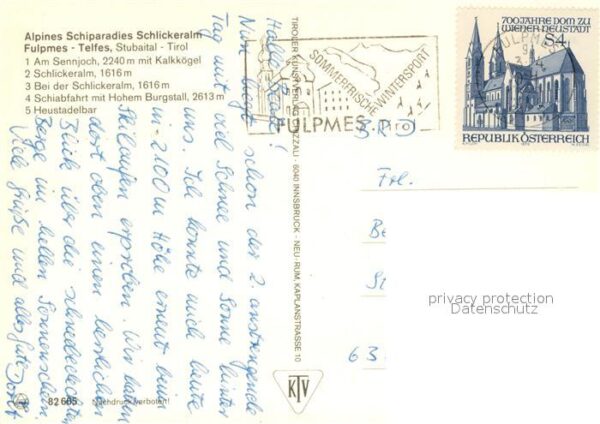 Alpines Schiparadies Schlickeralm
Fulpmes - Telfes, Stubaital - Tirol
1 Am Sennjoch, 2240 m mit Kalkkögel
2 Schlickeralm, 1616 m
3 Bei der Schlickeralm, 1616 m
4 Schiabfahrt mit Hohem Burgstall, 2613 m
5 Heustadelbar
Nun liegt schon der 2. anstrengende
Tag mit viel Schnee und Sonne hinter
uns. Ich konnte mich heute
in 2100 m Höhe erneut beim
Skilaufen erproben. Wir haben
dort oben einen herrlichen
Blick über die schneebedeckten
Berge im hellen Sonnenschein.
Viele Grüße und alles Gute
82 665 Nachdruck verboten!
TIROLER KUNSTVERLAG CHIZZALI · 6040 INNSBRUCK - NEU-RUM, KAPLANSTRASSE 10
KTV
SOMMERFRISCHE WINTERSPORT
FULPMES, Tirol
700 JAHRE DOM ZU
WIENER NEUSTADT
S4
FULPMES
REPUBLIK ÖSTERREICH
Frl.
63
privacy protection
Datenschutz